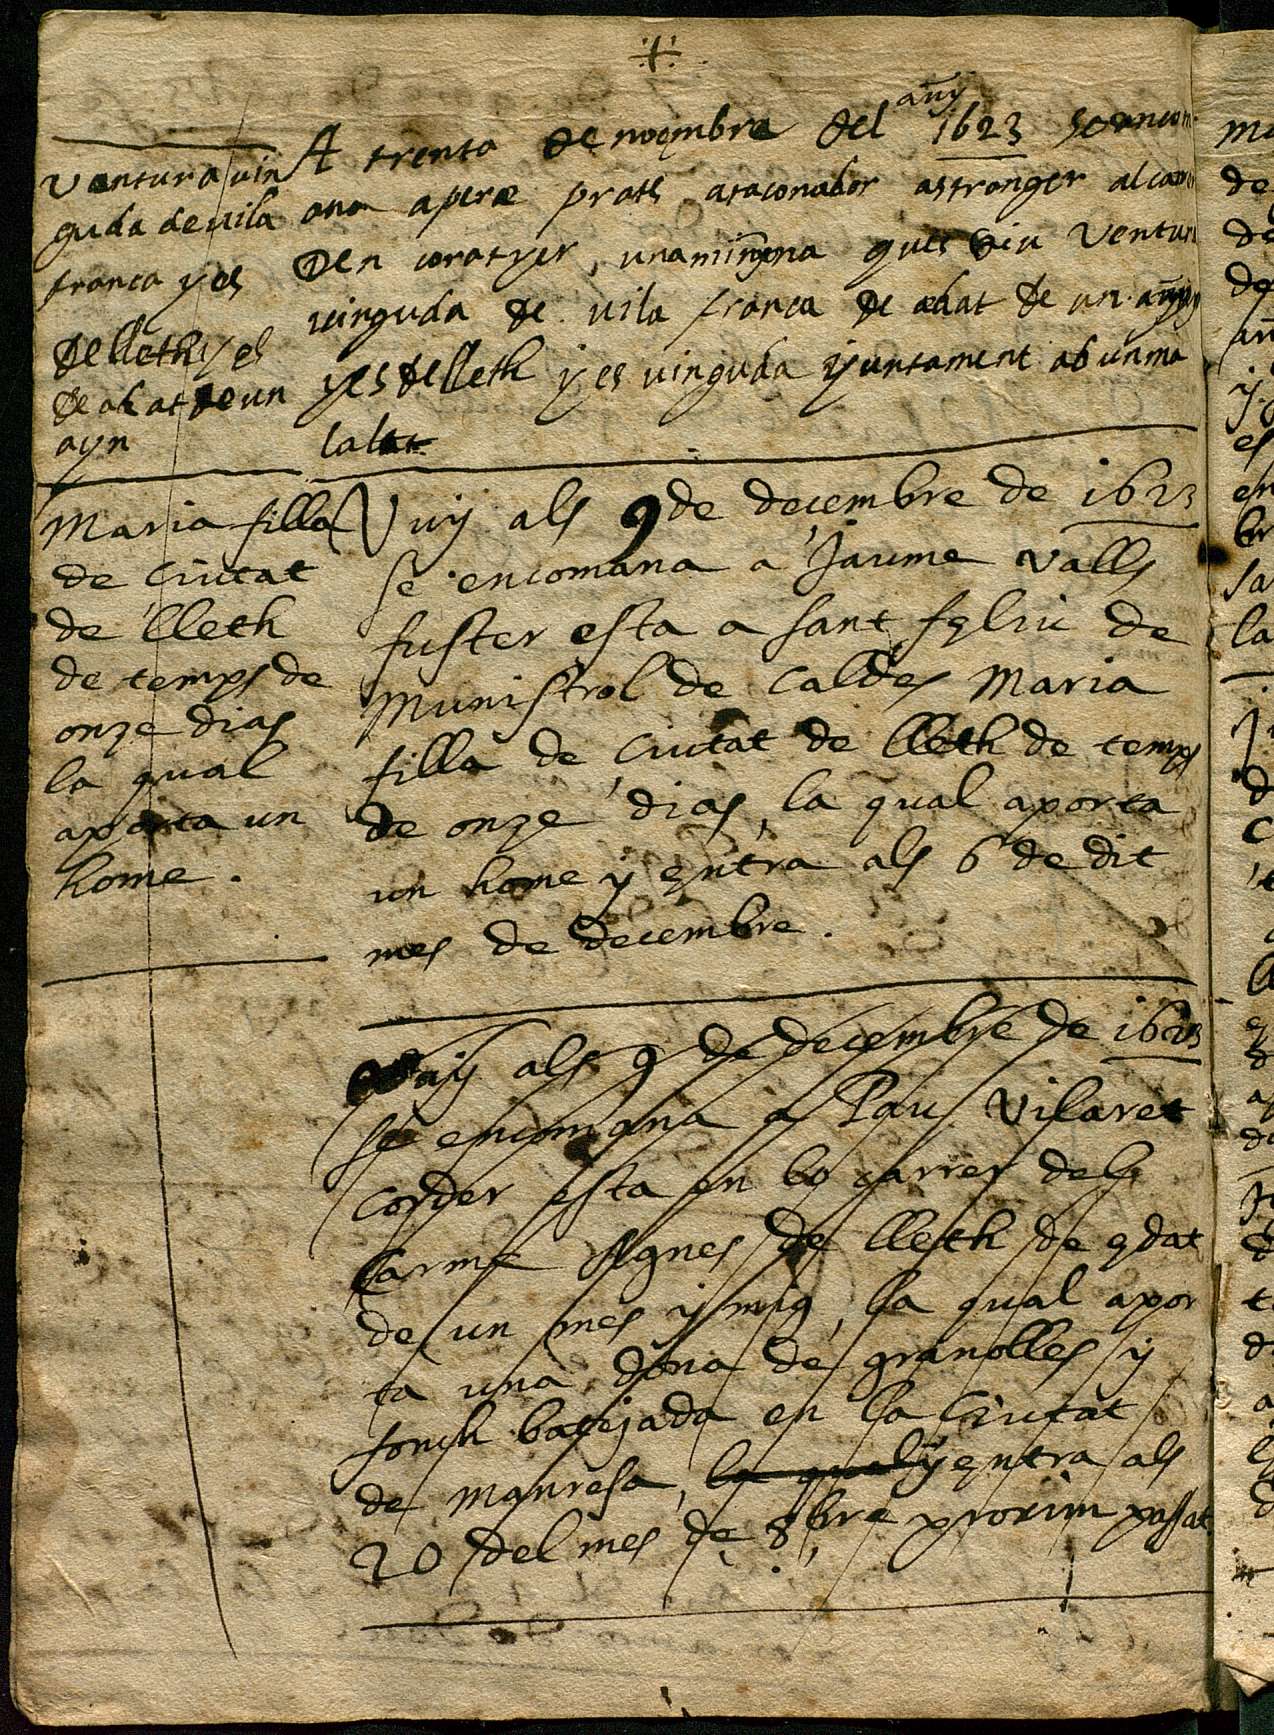 +
Ventura vin
guda de vila
franca y es
de lleth y es
de adat de un
ayn
A trenta de noembre del añy 1623 se encom
ana a pere prats ataconador astranger al carrer
den coratger, una minyona ques diu Ventura
vinguda de vila franca de adat de un añy
y es de lleth y es vinguda yuntament ab un ma
lalt
Maria filla
de Ciutat
de lleth
de temps de
onze dias
la qual
aporta un
home.
Vuy als 9 de decembre de 1623
se encomana a Jaume Valls
fuster esta a sant feliu de
Munistrol de Caldes Maria
filla de Ciutat de lleth de temps
de onze dias, la qual aporta
un home y entra als 6 de dit
mes de decembre.
Vuy als 9 de decembre de 1623
se encomana a Pau Vilaret
Corder esta en lo carrer dels
Carme Agnes de lleth de edat
de un mes y mig, la qual apor
ta una dona de granolles y
fonch batejada en la Ciutat
de manresa, la qual y entra als
20 del mes de 8bre proxim passat